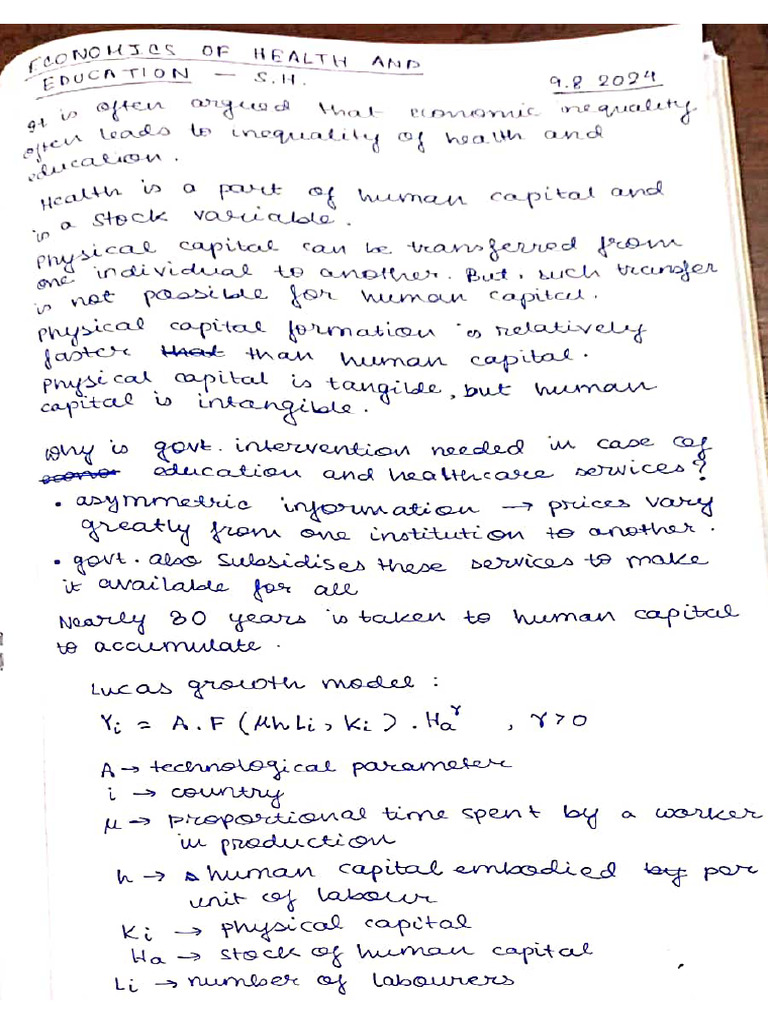 ECONOMICS OF HEALTH AND
EDUCATION — S.H.
9.8 2024
It is often argued that economic inequality
often leads to inequality of health and
education.
Health is a part of human capital and
is a stock variable.
Physical capital can be transferred from
one individual to another. But, such transfer
is not possible for human capital.
Physical capital formation is relatively
faster that than human capital.
Physical capital is tangible, but human
capital is intangible.
Why is govt. intervention needed in case of
econo education and healthcare services?
• asymmetric information → prices vary
greatly from one institution to another.
• govt. also subsidises these services to make
it available for all
Nearly 30 years is taken to human capital
to accumulate.
Lucas growth model :
Yi = A.F (μhLi, Ki) . Ha^γ , γ>0
A → technological parameter
i → country
μ → proportional time spent by a worker
in production
h → human capital embodied by per
unit of labour
Ki → physical capital
Ha → stock of human capital
Li → number of labourers